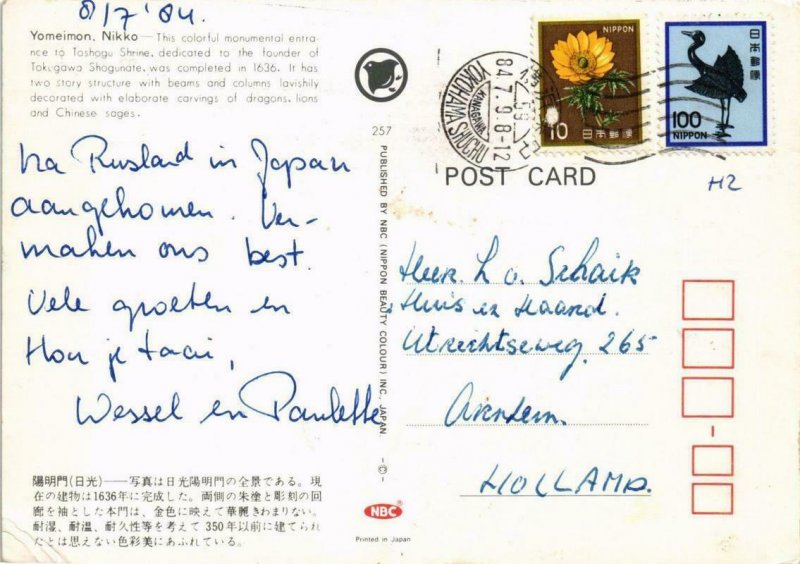 8/7'84.
Yomeimon, Nikko — This colorful monumental entra-
nce to Toshogu Shrine, dedicated to the founder of
Tokugawa Shogunate, was completed in 1636. It has
two story structure with beams and columns lavishily
decorated with elaborate carvings of dragons, lions
and Chinese sages.
Na Rusland in Japan
aangekomen. Ver-
maken ons best.
Vele groeten en
Hou je taai,
Wessel en Paulette
陽明門(日光)——写真は日光陽明門の全景である。現
在の建物は1636年に完成した。両側の朱塗と彫刻の回
廊を袖とした本門は、金色に映えて華麗きわまりない。
耐湿、耐温、耐久性等を考えて350年以前に建てられ
たとは思えない色彩美にあふれている。
257
PUBLISHED BY NBC (NIPPON BEAUTY COLOUR) INC., JAPAN
-©-
NBC
Printed in Japan
YOKOHAMA CHUO
KANAGAWA
84.7.9.8-12
NIPPON
10 日本郵便
日本郵便
100
NIPPON
POST CARD
H2
Heer L v. Schaik
"Huis en Haard.
Utrechtseweg. 265
Arnhem.
HOLLAND.